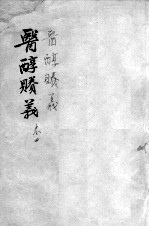 醫醇賸義
醫醇賸義